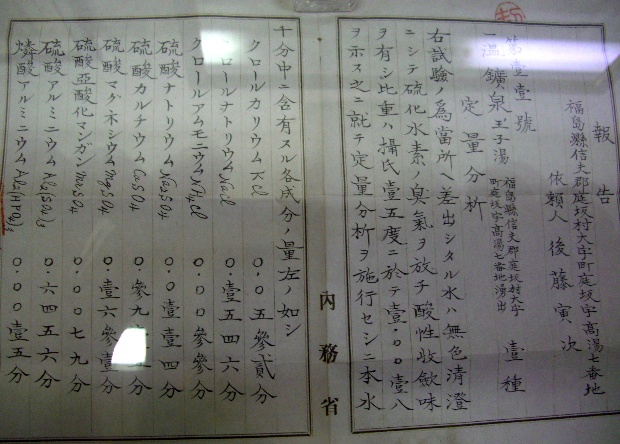 報告
福島縣信夫郡庭坂村大字町庭坂字高湯七番地
依頼人 後藤寅次
第壹壹號
一温鑛泉 王子湯 福島縣信夫郡庭坂村大字町庭坂字高湯七番地湧出 壹種
定量分析
右試験ノ為當所ヘ差出シタル水ハ無色清澄
ニシテ硫化水素ノ臭氣ヲ放チ酸性收歛味
ヲ有シ比重ハ攝氏壹五度ニ於テ壹・〇〇壹八
ヲ示ス之ニ就テ定量分析ヲ施行セシニ本水
内務省
十分中ニ含有スル各成分ノ量左ノ如シ
クロールカリウム KCl 〇・〇五參貳分
クロールナトリウム NaCl 〇・壹五四六分
クロールアムモニウム NH4Cl 〇・〇〇參參分
硫酸ナトリウム Na2SO4 〇・〇壹壹四分
硫酸カルチウム CaSO4 〇・參九分
硫酸マグネシウム MgSO4 〇・壹六參壹分
硫酸亞酸化マンガン MnSO4 〇・〇〇七九分
硫酸アルミニウム Al2(SO4)3 〇・六四五六分
燐酸アルミニウム Al2(HPO4)3 〇・〇〇壹五分